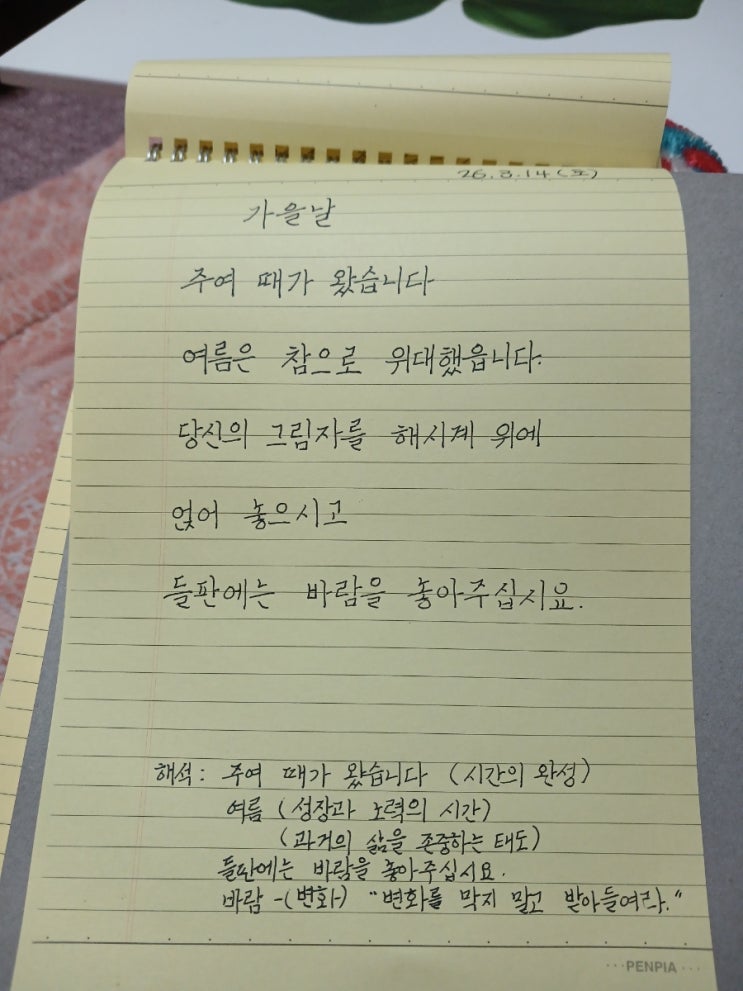 26.3.14(토)
가을날
주여 때가 왔습니다
여름은 참으로 위대했읍니다.
당신의 그림자를 해시계 위에
얹어 놓으시고
들판에는 바람을 놓아주십시요.
해석: 주여 때가 왔습니다 (시간의 완성)
여름 (성장과 노력의 시간)
(과거의 삶을 존중하는 태도)
들판에는 바람을 놓아주십시요.
바람 -(변화) "변화를 막지 말고 받아들여라."
PENPIA